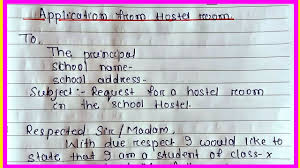 Application from Hostel room
To,
The principal
school name-
school address-
Subject:- Request for a hostel room
in the school Hostel.
Respected Sir/Madam,
With due respect I would like to
state that I am a student of class-x